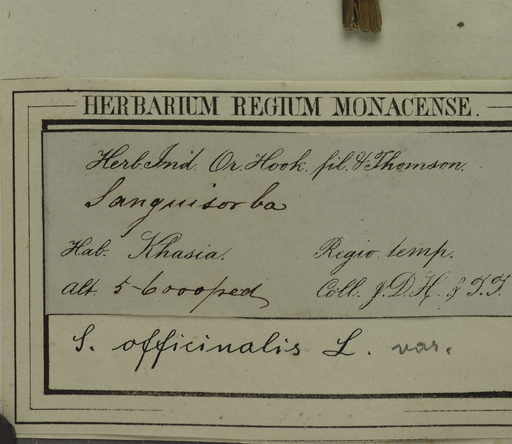 HERBARIUM REGIUM MONACENSE.
Herb. Ind. Or. Hook. fil. & Thomson.
Sanguisorba
Hab. Khasia. Regio temp.
Alt. 5-6000 ped Coll. J. D. H. & T. T.
S. officinalis L. var.